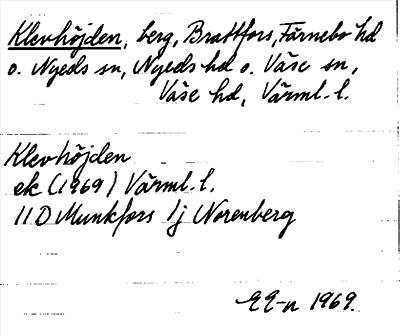 Klevhöjden, berg, Brattfors, Färnebo hd
o. Nyeds sn, Nyeds hd o. Väse sn,
Väse hd, Värml. l.
Klevhöjden
ek (1969) Värml. l.
11D Munkfors 1j Norenberg
EE-n 1969.